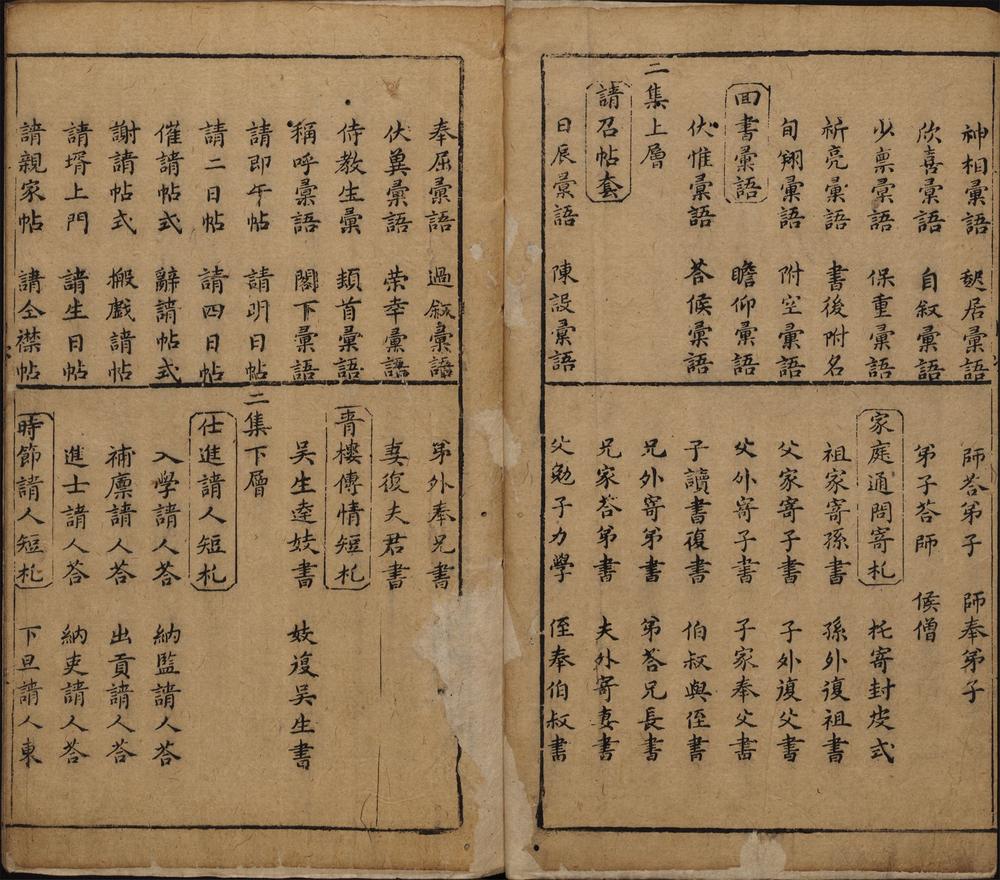 神相彙語 居彙語
欣喜彙語 自叙彙語
少禀彙語 保重彙語
祈亮彙語 書後附名
旬翔彙語 附空彙語
囬書彙語 瞻仰彙語
伏惟彙語 荅候彙語
二集上層
請召帖套
日辰彙語 陳設彙語
師荅弟子 師奉弟子
弟子荅師 候僧
家庭通問寄札 托寄封皮式
祖家寄孫書 孫外復祖書
父家寄子書 子外復父書
父外寄子書 子家奉父書
子讀書復書 伯叔與侄書
兄外寄弟書 弟荅兄長書
兄家荅弟書 夫外寄妻書
父勉子力學 侄奉伯叔書
奉屈彙語 過叙彙語
伏奠彙語 荣幸彙語
侍教生彙 頓首彙語
稱呼彙語 閣下彙語
請即午帖 請明日帖
請二日帖 請四日帖
催請帖式 辭請帖式
謝請帖式 搬戲請帖
請壻上門 請生日帖
請親家帖 請仝襟帖
弟外奉兄書
妻復夫君書
青樓傳情短札
吳生達妓書 妓復吳生書
二集下層
仕進請人短札
入學請人荅 納監請人荅
補廪請人荅 出貢請人荅
進士請人荅 納吏請人荅
時節請人短札 下旦請人東